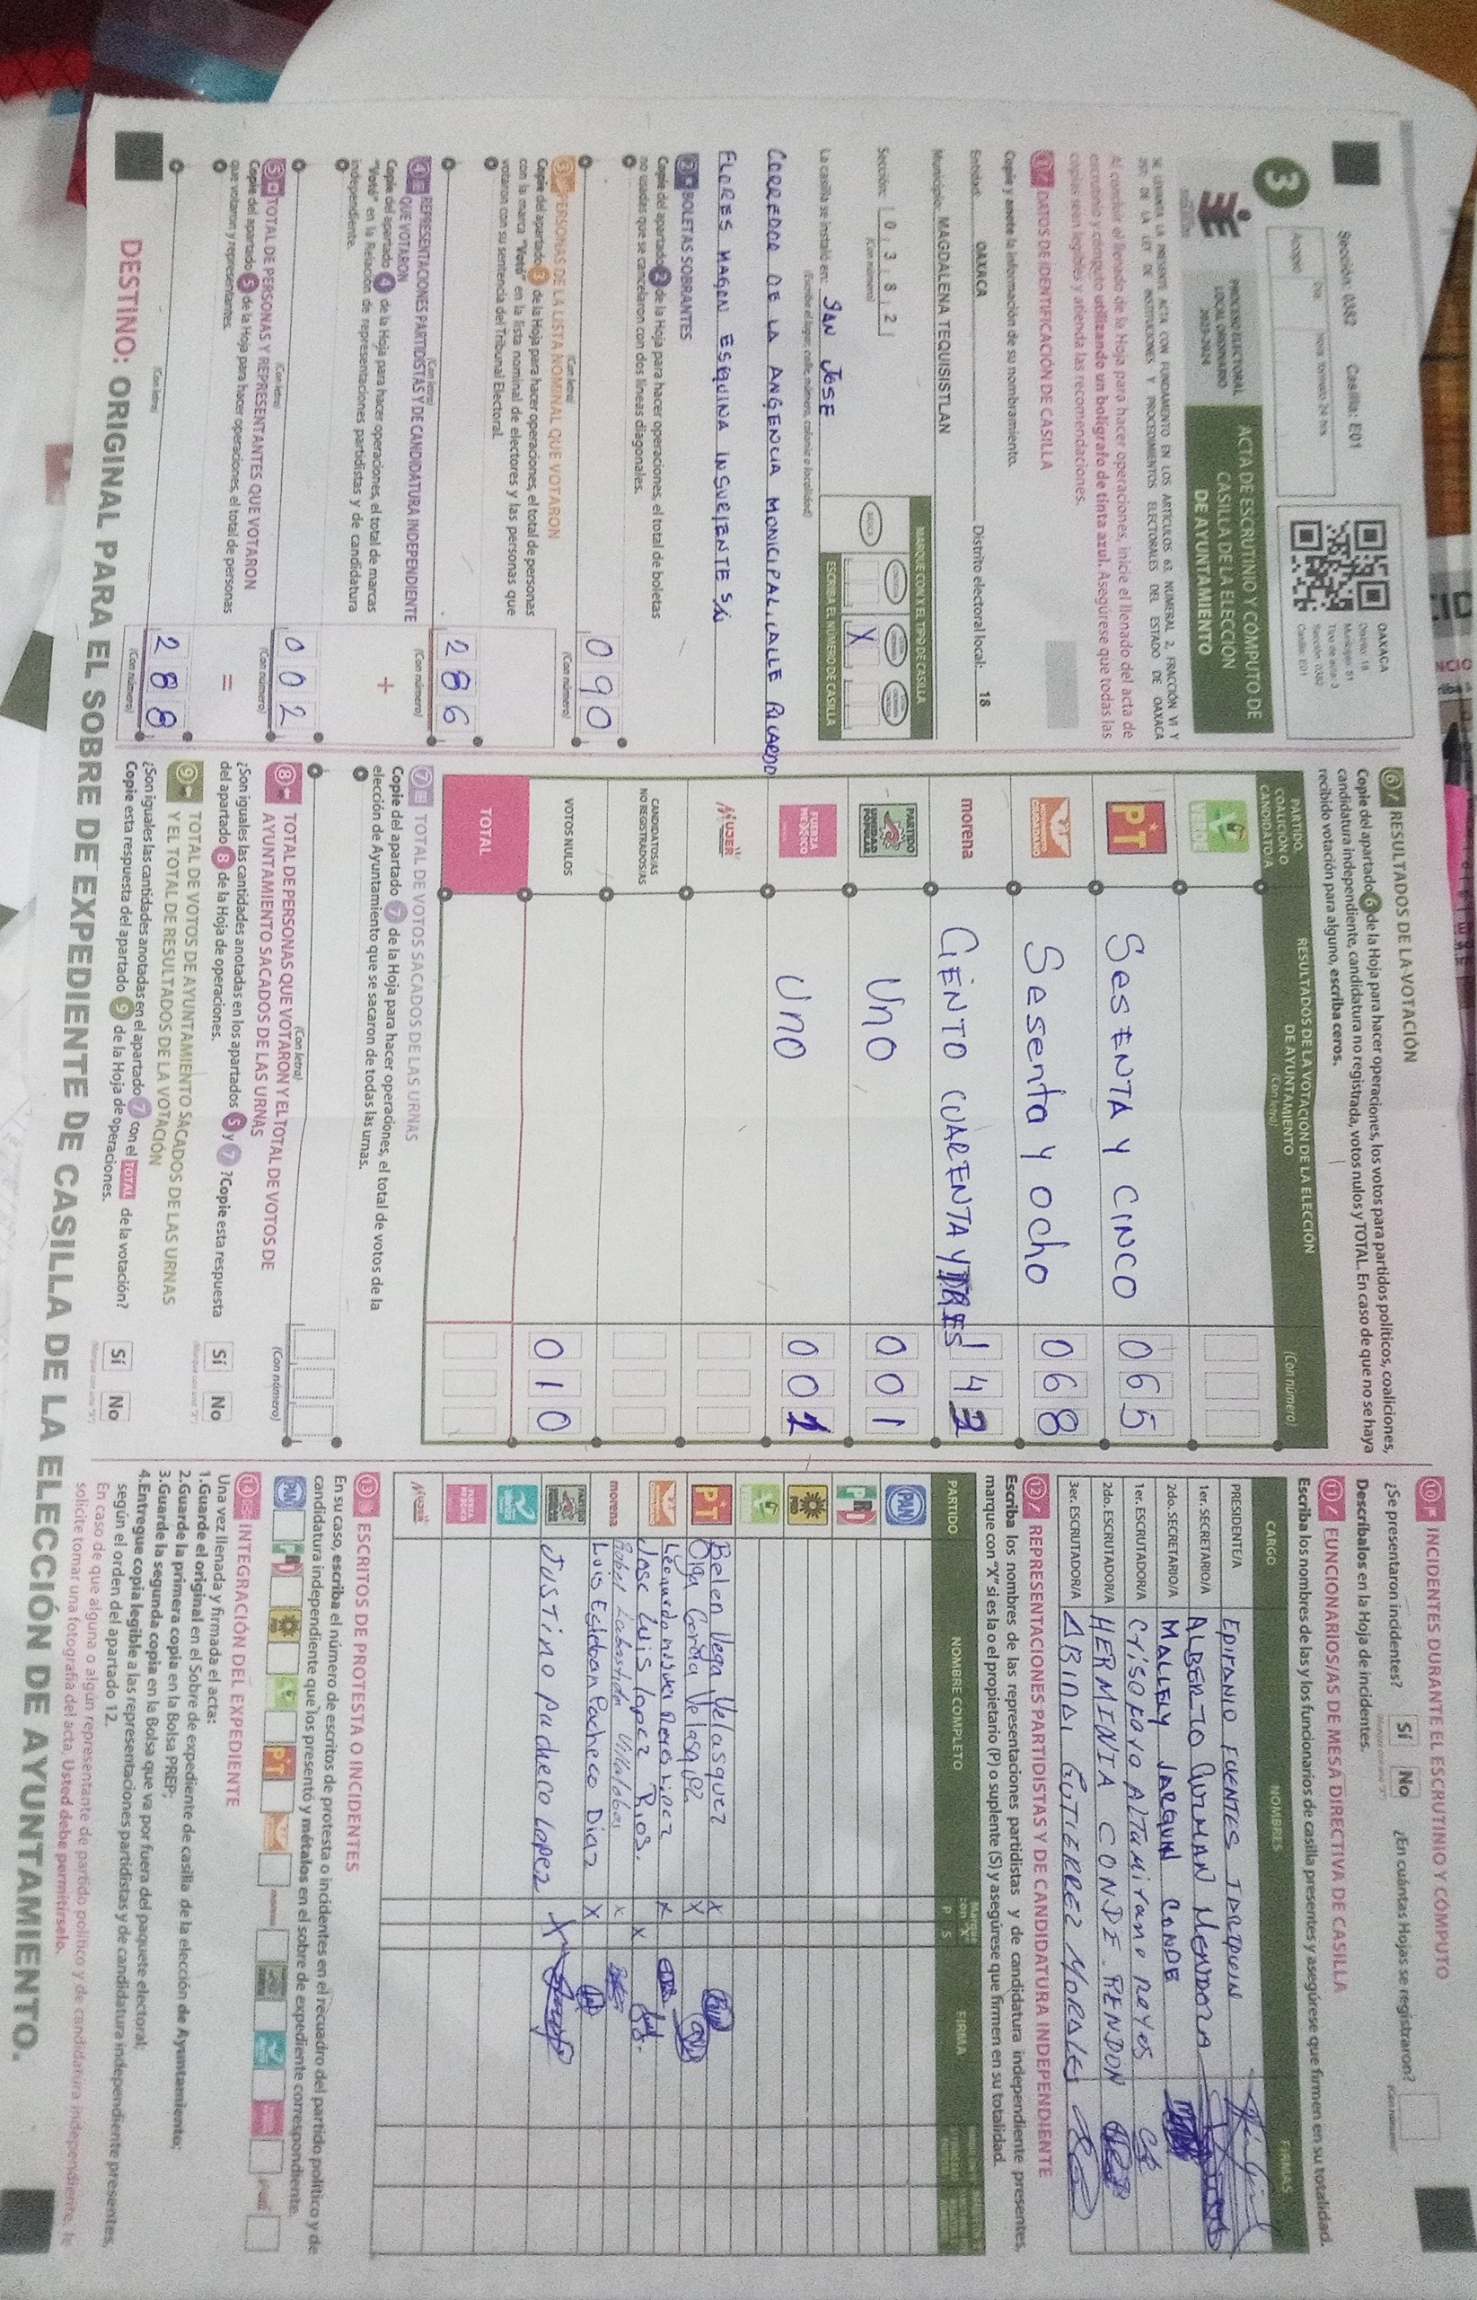 Sección: 0382 Casilla: E01
OAXACA
Distrito: 18
Municipio: 51
Tipo de acta: 3
Sección: 0382
Casilla: E01
Acopio
Día
Hora formato 24 hrs
3
PROCESO ELECTORAL
LOCAL ORDINARIO
2023-2024
ACTA DE ESCRUTINIO Y CÓMPUTO DE
CASILLA DE LA ELECCIÓN
DE AYUNTAMIENTO
SE LEVANTA LA PRESENTE ACTA CON FUNDAMENTO EN LOS ARTÍCULOS 63, NUMERAL 2, FRACCIÓN VI Y
DE LA LEY DE INSTITUCIONES Y PROCEDIMIENTOS ELECTORALES DEL ESTADO DE OAXACA
Al concluir el llenado de la Hoja para hacer operaciones, inicie el llenado del acta de
escrutinio y cómputo utilizando un bolígrafo de tinta azul. Asegúrese que todas las
copias sean legibles y atienda las recomendaciones.
1 DATOS DE IDENTIFICACIÓN DE CASILLA
Copie y anote la información de su nombramiento.
Entidad: OAXACA Distrito electoral local: 18
Municipio: MAGDALENA TEQUISISTLAN
Sección: 0 3 8 2
(Con número)
MARQUE CON X EL TIPO DE CASILLA
BÁSICA
X
ESCRIBA EL NÚMERO DE CASILLA
La casilla se instaló en: SAN JOSE
(Escriba el lugar, calle, número, colonia o localidad)
CORREDOR DE LA ANGENCIA MONICIPAL, CALLE RICARDO
FLORES MAGON ESQUINA INSURIENTE S/N
2 BOLETAS SOBRANTES
Copie del apartado 2 de la Hoja para hacer operaciones, el total de boletas
no usadas que se cancelaron con dos líneas diagonales.
(Con letra)
090
(Con número)
3 PERSONAS DE LA LISTA NOMINAL QUE VOTARON
Copie del apartado 3 de la Hoja para hacer operaciones, el total de personas
con la marca "Votó" en la lista nominal de electores y las personas que
votaron con su sentencia del Tribunal Electoral.
(Con letra)
286
(Con número)
4 REPRESENTACIONES PARTIDISTAS Y DE CANDIDATURA INDEPENDIENTE
QUE VOTARON
Copie del apartado 4 de la Hoja para hacer operaciones, el total de marcas
"Votó" en la Relación de representaciones partidistas y de candidatura
independiente.
+
(Con letra)
002
(Con número)
5 TOTAL DE PERSONAS Y REPRESENTANTES QUE VOTARON
Copie del apartado 5 de la Hoja para hacer operaciones, el total de personas
que votaron y representantes.
=
(Con letra)
288
(Con número)
6 RESULTADOS DE LA VOTACIÓN
Copie del apartado 6 de la Hoja para hacer operaciones, los votos para partidos políticos, coaliciones,
candidatura independiente, candidatura no registrada, votos nulos y TOTAL. En caso de que no se haya
recibido votación para alguno, escriba ceros.
PARTIDO, COALICIÓN O CANDIDATO/A
RESULTADOS DE LA VOTACIÓN DE LA ELECCIÓN
DE AYUNTAMIENTO
(Con letra)
(Con número)
VERDE
PT SESENTA Y CINCO 065
MOVIMIENTO CIUDADANO Sesenta y ocho 068
morena CIENTO CUARENTA Y TRES 143
PARTIDO UNIDAD POPULAR Uno 001
FUERZA MÉXICO Uno 001
MUJER
CANDIDATOS/AS
NO REGISTRADOS/AS
VOTOS NULOS 010
TOTAL
7 TOTAL DE VOTOS SACADOS DE LAS URNAS
Copie del apartado 7 de la Hoja para hacer operaciones, el total de votos de la
elección de Ayuntamiento que se sacaron de todas las urnas.
(Con letra)
(Con número)
8 TOTAL DE PERSONAS QUE VOTARON Y EL TOTAL DE VOTOS DE
AYUNTAMIENTO SACADOS DE LAS URNAS
¿Son iguales las cantidades anotadas en los apartados 5 y 7 ?Copie esta respuesta
del apartado 8 de la Hoja de operaciones.
Sí No
9 TOTAL DE VOTOS DE AYUNTAMIENTO SACADOS DE LAS URNAS
Y EL TOTAL DE RESULTADOS DE LA VOTACIÓN
¿Son iguales las cantidades anotadas en el apartado 7 con el TOTAL de la votación?
Copie esta respuesta del apartado 9 de la Hoja de operaciones.
Sí No
10 INCIDENTES DURANTE EL ESCRUTINIO Y CÓMPUTO
¿Se presentaron incidentes? Sí No ¿En cuántas Hojas se registraron?
Descríbalos en la Hoja de incidentes.
11 FUNCIONARIOS/AS DE MESA DIRECTIVA DE CASILLA
Escriba los nombres de las y los funcionarios de casilla presentes y asegúrese que firmen en su totalidad.
CARGO NOMBRES FIRMAS
PRESIDENTE/A EPIFANIO FUENTES
1er. SECRETARIO/A ALBERTO GUZMAN MENDOZA
2do. SECRETARIO/A MALLELY JARQUIN CONDE
1er. ESCRUTADOR/A Crisoforo Altamirano Reyes
2do. ESCRUTADOR/A HERMINIA CONDE RENDON
3er. ESCRUTADOR/A ABINAI GUTIERREZ MORALES
12 REPRESENTACIONES PARTIDISTAS Y DE CANDIDATURA INDEPENDIENTE
Escriba los nombres de las representaciones partidistas y de candidatura independiente presentes,
marque con "X" si es la o el propietario (P) o suplente (S) y asegúrese que firmen en su totalidad.
PARTIDO NOMBRE COMPLETO P S FIRMA
PAN
PRI
PRD
PT Belen Vega Velasquez X
Olga Garcia Velasquez X
Jose Luis lopez Rios. X
morena
Luis Esteban Pacheco Diaz X
Justino pacheco lopez X
MUJER
13 ESCRITOS DE PROTESTA O INCIDENTES
En su caso, escriba el número de escritos de protesta o incidentes en el recuadro del partido político y de
candidatura independiente que los presentó y métalos en el sobre de expediente correspondiente.
PAN PRI PRD PT
14 INTEGRACIÓN DEL EXPEDIENTE
Una vez llenada y firmada el acta:
1.Guarde el original en el Sobre de expediente de casilla de la elección de Ayuntamiento;
2.Guarde la primera copia en la Bolsa PREP;
3.Guarde la segunda copia en la Bolsa que va por fuera del paquete electoral;
4.Entregue copia legible a las representaciones partidistas y de candidatura independiente presentes,
según el orden del apartado 12.
En caso de que alguna o algún representante de partido político y de candidatura independiente, le
solicite tomar una fotografía del acta, Usted debe permitírselo.
DESTINO: ORIGINAL PARA EL SOBRE DE EXPEDIENTE DE CASILLA DE LA ELECCIÓN DE AYUNTAMIENTO.